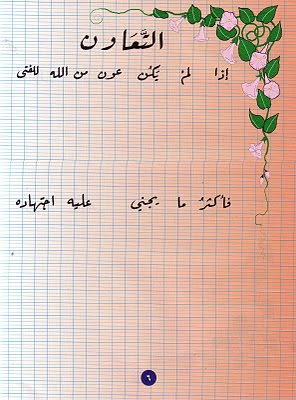 التَّعَاون
إذا لمْ يَكُن عون من الله للفتى
فأكثرُ ما يجني عليه اجتهاده
٦